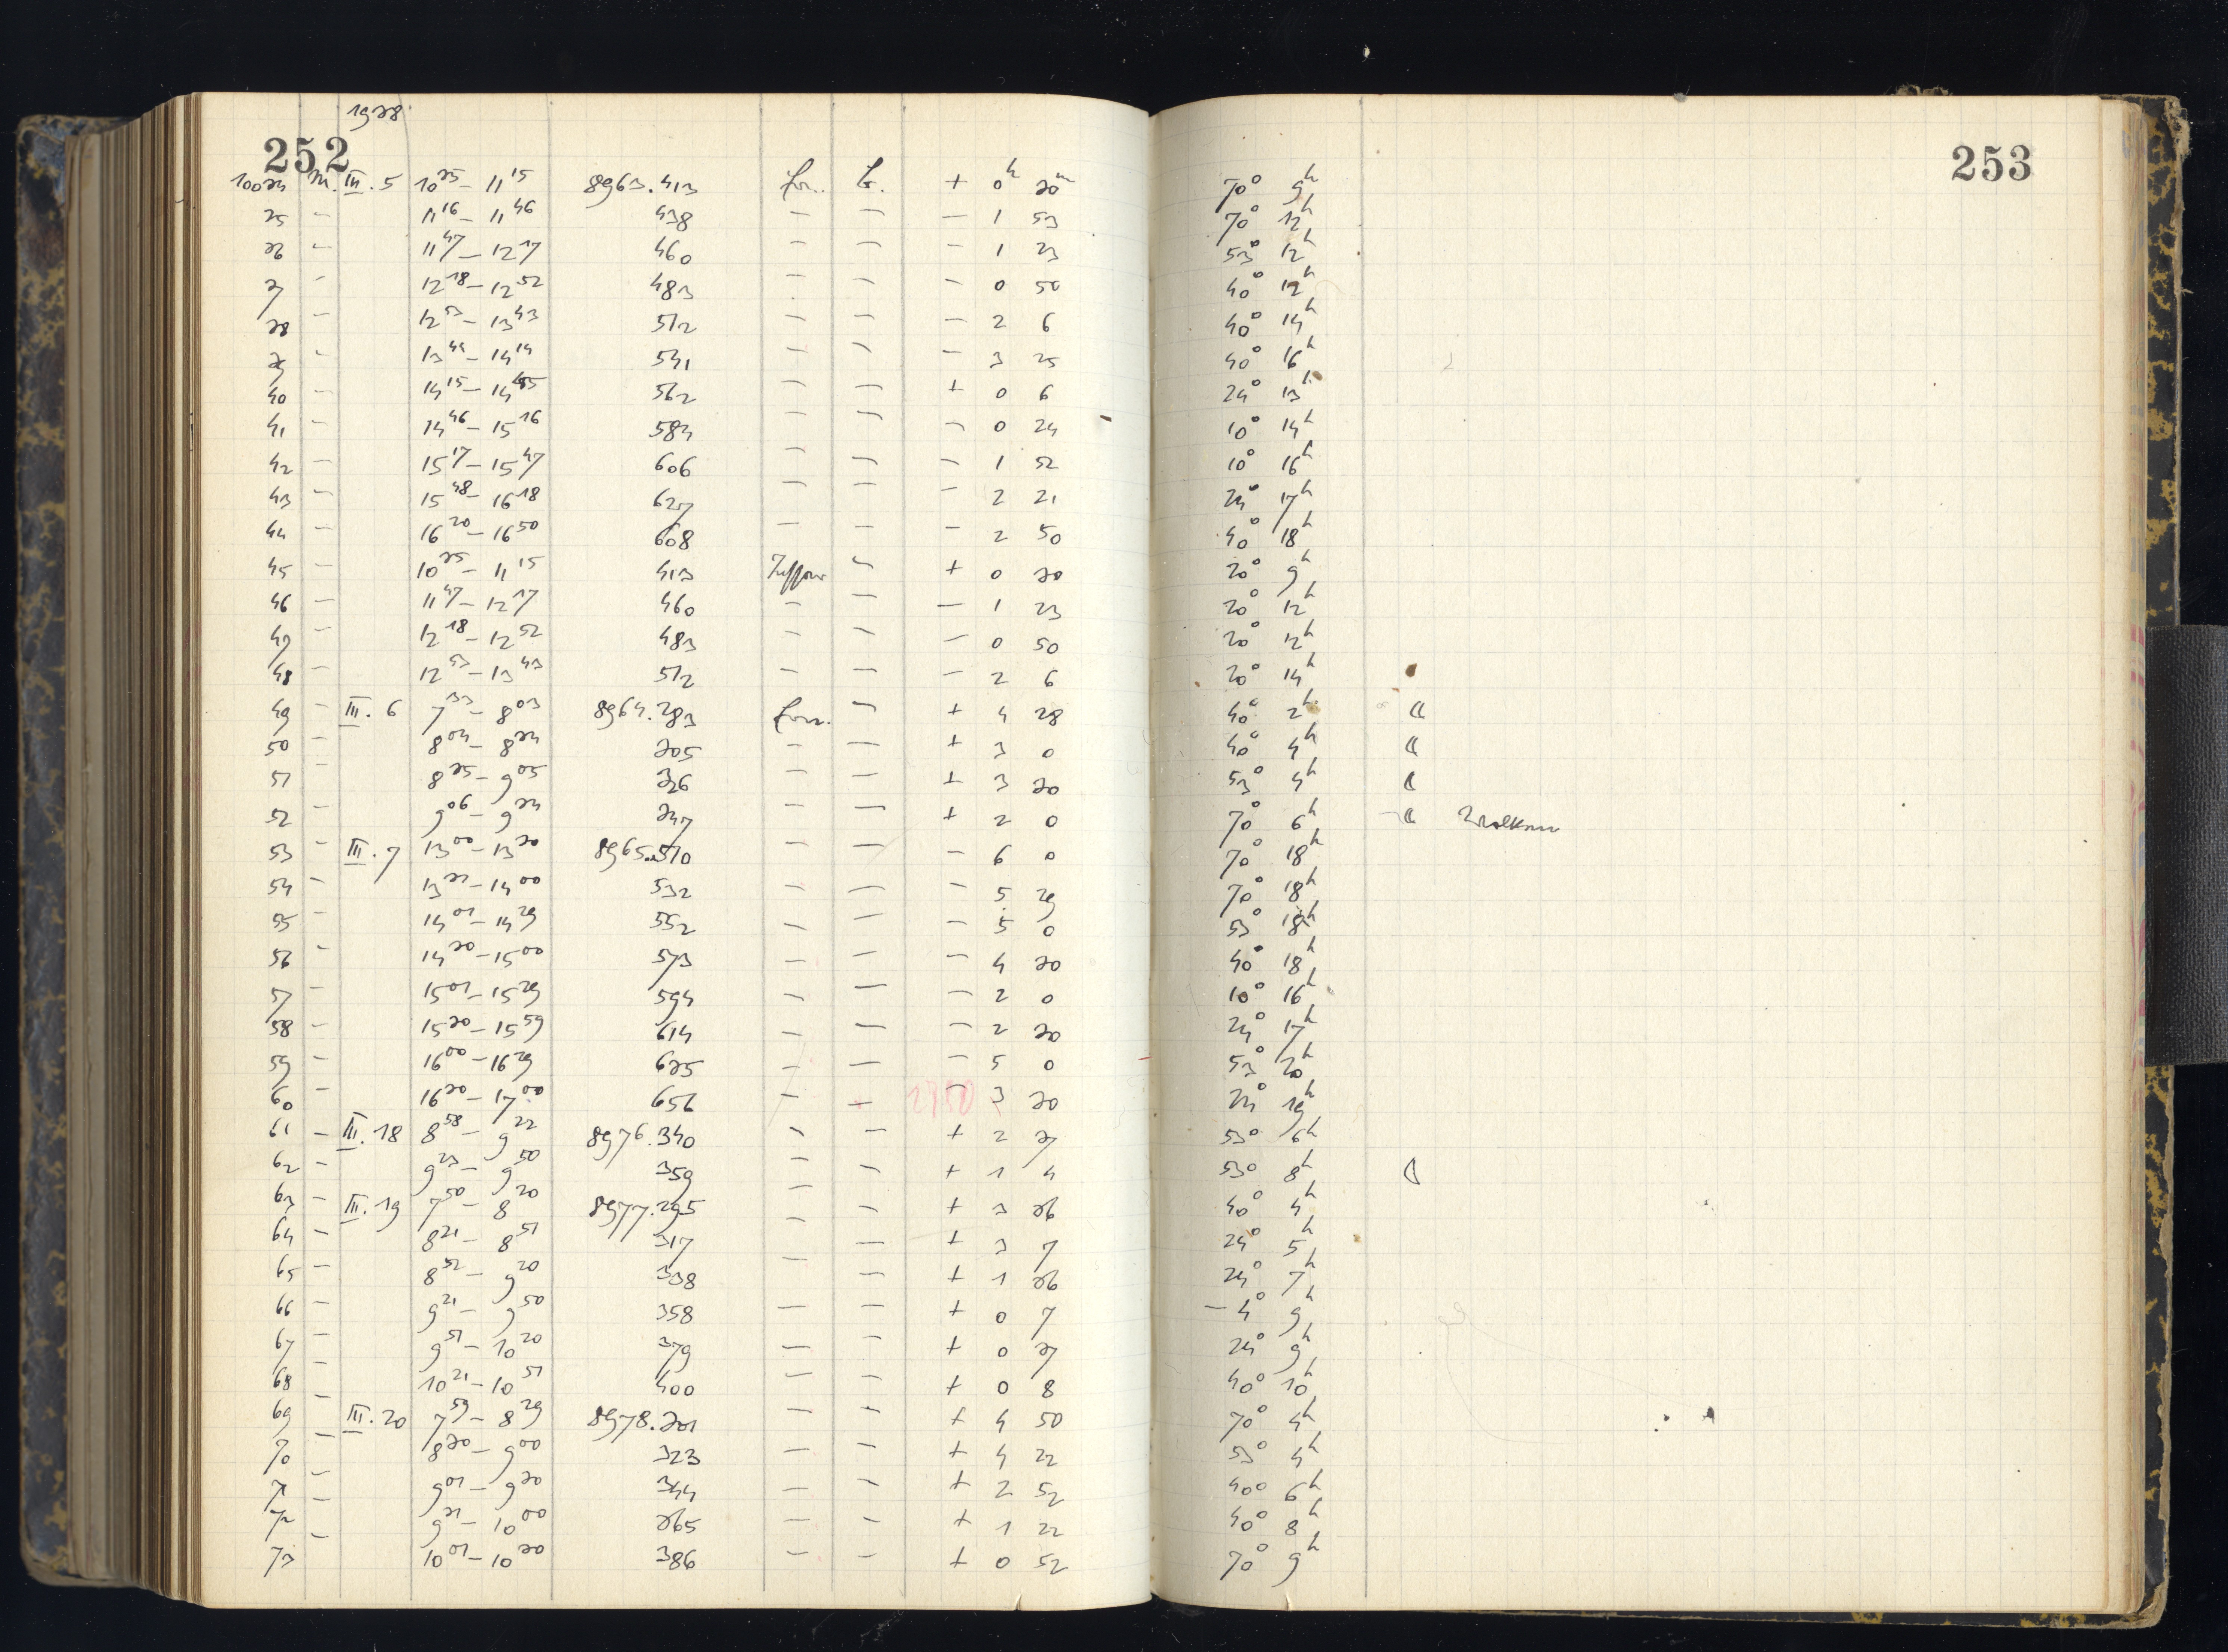 1938
252
10034 M. III.5 10 35 – 11 15 8963.413 Ern. G. + 0h 30m
35 – 11 16 – 11 46 438 – – – 1 53
36 – 11 47 – 12 17 460 – – – 1 23
37 – 12 18 – 12 52 483 – – – 0 50
38 – 12 53 – 13 43 512 – – – 2 6
39 – 13 44 – 14 14 541 – – – 3 35
40 – 14 15 – 14 45 562 – – + 0 6
41 – 14 46 – 15 16 584 – – – 0 24
42 – 15 17 – 15 47 606 – – – 1 52
43 – 15 48 – 16 18 627 – – – 2 21
44 – 16 20 – 16 50 608 – – – 2 50
45 – 10 35 – 11 15 413 – + 0 30
46 – 11 47 – 12 17 460 – – – 1 23
47 – 12 18 – 12 52 483 – – – 0 50
48 – 12 53 – 13 43 512 – – – 2 6
49 – III.6 7 33 – 8 03 8964.283 Ern. – + 4 28
50 – 8 04 – 8 34 305 – – + 3 0
51 – 8 35 – 9 05 326 – – + 3 30
52 – 9 06 – 9 34 347 – – + 2 0
53 – III.7 13 00 – 13 30 8965.510 – – – 6 0
54 – 13 31 – 14 00 532 – – – 5 29
55 – 14 01 – 14 29 552 – – – 5 0
56 – 14 30 – 15 00 573 – – – 4 30
57 – 15 01 – 15 29 594 – – – 2 0
58 – 15 30 – 15 59 614 – – – 2 30
59 – 16 00 – 16 29 635 – – – 5 0
60 – 16 30 – 17 00 656 – – – 3 30
61 – III.18 8 58 – 9 22 8976.340 – – + 2 37
62 – 9 23 – 9 50 359 – – + 1 4
63 – III.19 7 50 – 8 20 8977.295 – – + 3 36
64 – 8 21 – 8 51 317 – – + 3 7
65 – 8 52 – 9 20 338 – – + 1 36
66 – 9 21 – 9 50 358 – – + 0 7
67 – 9 51 – 10 20 379 – – + 0 37
68 – 10 21 – 10 51 400 – – + 0 8
69 – III.20 7 59 – 8 29 8978.301 – – + 4 50
70 – 8 30 – 9 00 323 – – + 4 22
71 – 9 01 – 9 30 344 – – + 2 52
72 – 9 31 – 10 00 365 – – + 1 22
73 – 10 01 – 10 30 386 – – + 0 52
253
70° 9h
70° 12h
53° 12h
40° 12h
40° 14h
40° 16h
24° 13h
10° 14h
10° 16h
24° 17h
40° 18h
20° 9h
20° 12h
20° 12h
20° 14h
40° 2h ☾
40° 4h ☾
53° 4h ☾
70° 6h ☾ Wolken
70° 18h
70° 18h
53° 18h
40° 18h
10° 16h
24° 17h
53° 20h
24° 19h
53° 6h
53° 8h ☾
40° 4h
24° 5h
24° 7h
–4° 9h
24° 9h
40° 10h
70° 4h
53° 4h
40° 6h
40° 8h
70° 9h